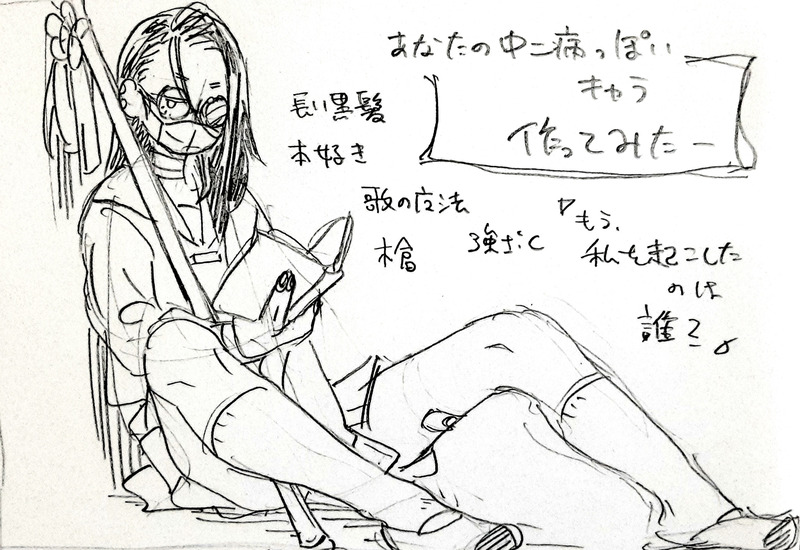 あなたの中二病っぽい
きゃら
作ってみたー
長い黒髪
本好き
歌の魔法
槍
強さC
「もう、
私を起こした
のは
誰?」